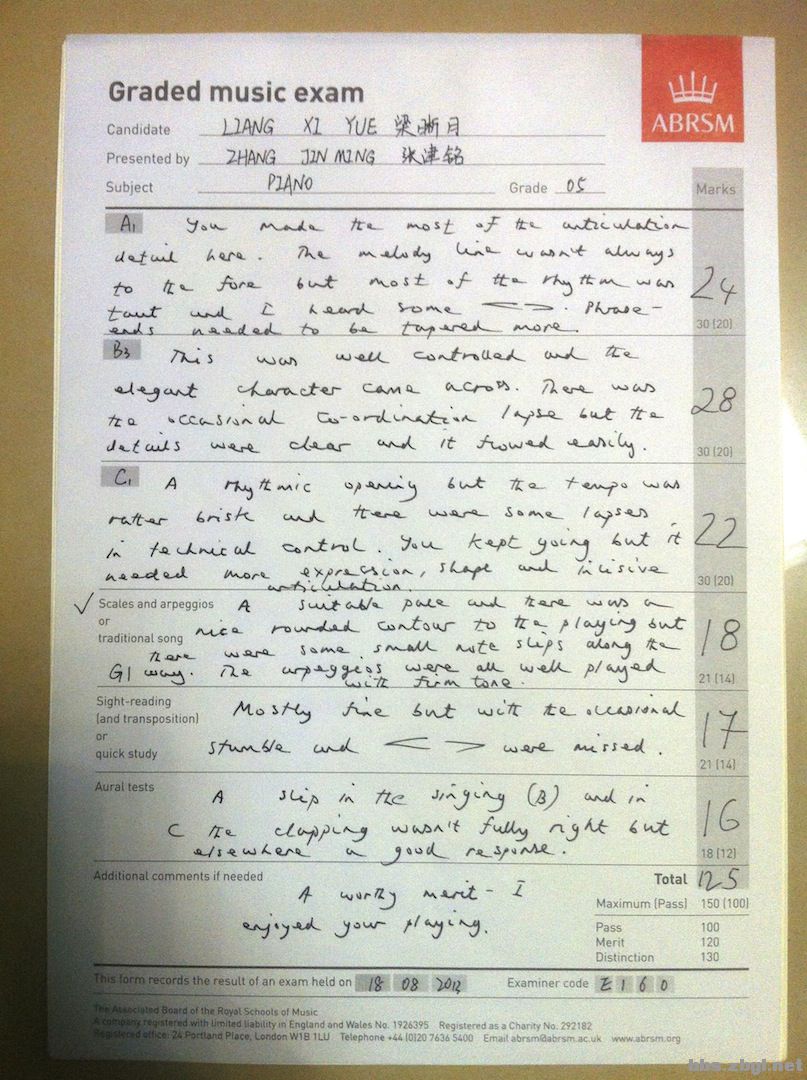 Graded music exam
ABRSM
Candidate LIANG XI YUE 梁晰月
Presented by ZHANG JIN MING 张津铭
Subject PIANO Grade 05
Marks
A1 You made the most of the articulation
detail here. The melody line wasn't always
to the fore but most of the rhythm was
taut and I heard some < >. Phrase-
ends needed to be tapered more.
24
30 (20)
B3 This was well controlled and the
elegant character came across. There was
the occasional co-ordination lapse but the
details were clear and it flowed easily.
28
30 (20)
C1 A rhythmic opening but the tempo was
rather brisk and there were some lapses
in technical control. You kept going but it
needed more expression, shape and incisive
articulation.
22
30 (20)
✓ Scales and arpeggios
or
traditional song
A suitable pace and there was a
nice rounded contour to the playing but
there were some small note slips along the
G1 way. The arpeggios were all well played
with firm tone.
18
21 (14)
Sight-reading
(and transposition)
or
quick study
Mostly fine but with the occasional
stumble and < > were missed.
17
21 (14)
Aural tests
A slip in the singing (B) and in
C the clapping wasn't fully right but
elsewhere a good response.
16
18 (12)
Additional comments if needed
A worthy merit - I
enjoyed your playing.
Total 125
Maximum (Pass) 150 (100)
Pass 100
Merit 120
Distinction 130
This form records the result of an exam held on 18 08 2012 Examiner code E 1 6 0
The Associated Board of the Royal Schools of Music
A company registered with limited liability in England and Wales No. 1926395 Registered as a Charity No. 292182
Registered office: 24 Portland Place, London W1B 1LU Telephone +44 (0)20 7636 5400 Email abrsm@abrsm.ac.uk www.abrsm.org
bbs.zbgl.net